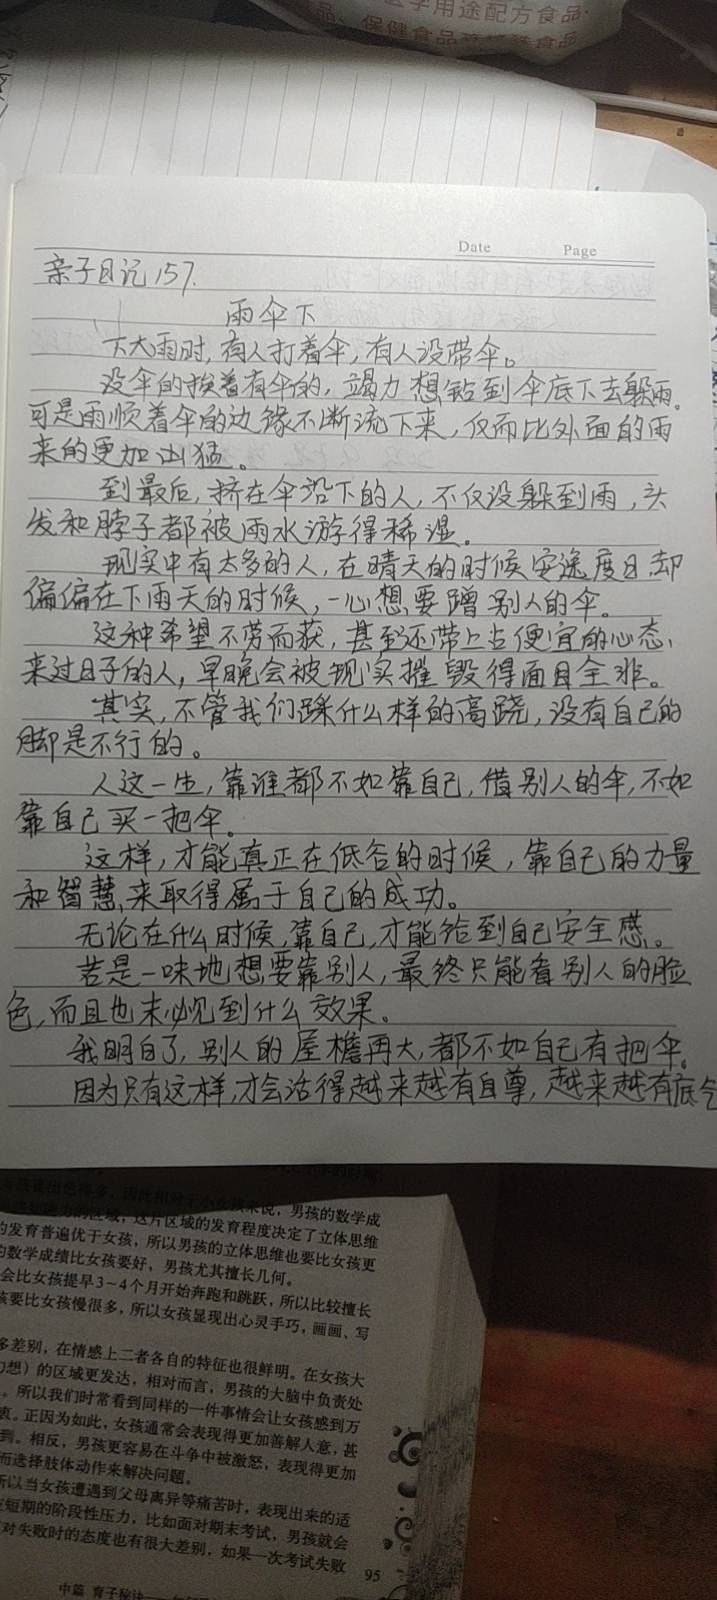 医学用途配方食品、
食品、保健食品
Date Page
亲子日记157.
雨伞下
下大雨时,有人打着伞,有人没带伞。
没伞的挨着有伞的,竭力想钻到伞底下去躲雨。
可是雨顺着伞的边缘不断流下来,反而比外面的雨
来的更加凶猛。
到最后,挤在伞沿下的人,不仅没躲到雨,头
发和脖子都被雨水淋得稀湿。
现实中有太多的人,在晴天的时候安逸度日,却
偏偏在下雨天的时候,一心想要蹭别人的伞。
这种希望不劳而获,甚至还带上占便宜的心态,
来过日子的人,早晚会被现实摧毁得面目全非。
其实,不管我们踩什么样的高跷,没有自己的
脚是不行的。
人这一生,靠谁都不如靠自己,借别人的伞,不如
靠自己买一把伞。
这样,才能真正在低谷的时候,靠自己的力量
和智慧,来取得属于自己的成功。
无论在什么时候,靠自己,才能给到自己安全感。
若是一味地想要靠别人,最终只能看别人的脸
色,而且也未必见到什么效果。
我明白了,别人的屋檐再大,都不如自己有把伞。
因为只有这样,才会活得越来越有自尊,越来越有底气
男孩的数学成
区域,这片区域的发育程度决定了立体思维
的发育普遍优于女孩,所以男孩的立体思维也要比女孩更
的数学成绩比女孩要好,男孩尤其擅长几何。
会比女孩提早3~4个月开始奔跑和跳跃,所以比较擅长
孩要比女孩慢很多,所以女孩显现出心灵手巧,画画、写
多差别,在情感上二者各自的特征也很鲜明。在女孩大
幻想)的区域更发达,相对而言,男孩的大脑中负责处
。所以我们时常看到同样的一件事情会让女孩感到万
衷。正因为如此,女孩通常会表现得更加善解人意,甚
到。相反,男孩更容易在斗争中被激怒,表现得更加
而选择肢体动作来解决问题。
所以当女孩遭遇到父母离异等痛苦时,表现出来的适
短期的阶段性压力,比如面对期末考试,男孩就会
对失败时的态度也有很大差别,如果一次考试失败
95
中篇 育子秘诀